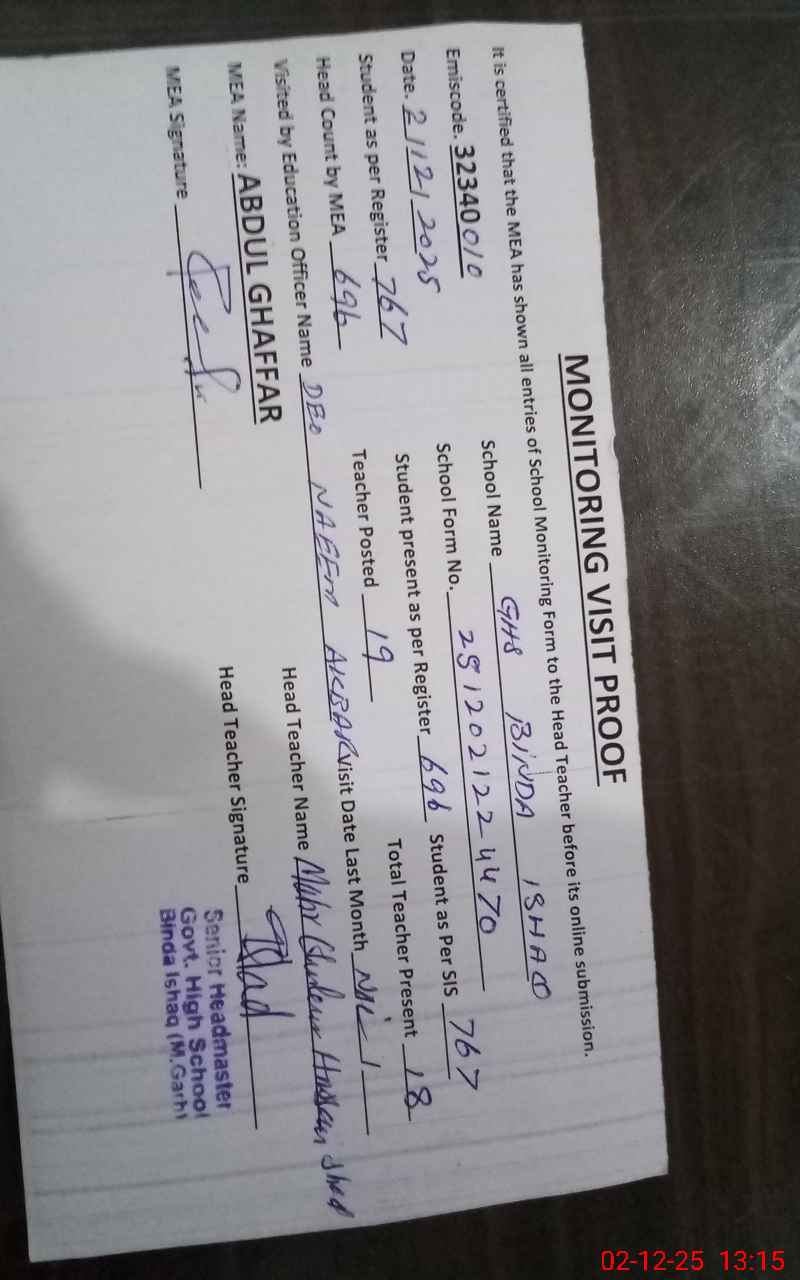 MONITORING VISIT PROOF
It is certified that the MEA has shown all entries of School Monitoring Form to the Head Teacher before its online submission.
Emiscode. 32340010 School Name GHS BINDA ISHAQ
Date. 2/12/2025 School Form No. 2512021224470
Student as per Register 767 Student present as per Register 696 Student as Per SIS 767
Head Count by MEA 696 Teacher Posted 19 Total Teacher Present 18
Visited by Education Officer Name DEO NAEEM AKBAR Visit Date Last Month NIL
MEA Name: ABDUL GHAFFAR Head Teacher Name Hussain
MEA Signature Head Teacher Signature
Senior Headmaster
Govt. High School
Binda Ishaq (M.Garh)
02-12-25 13:15